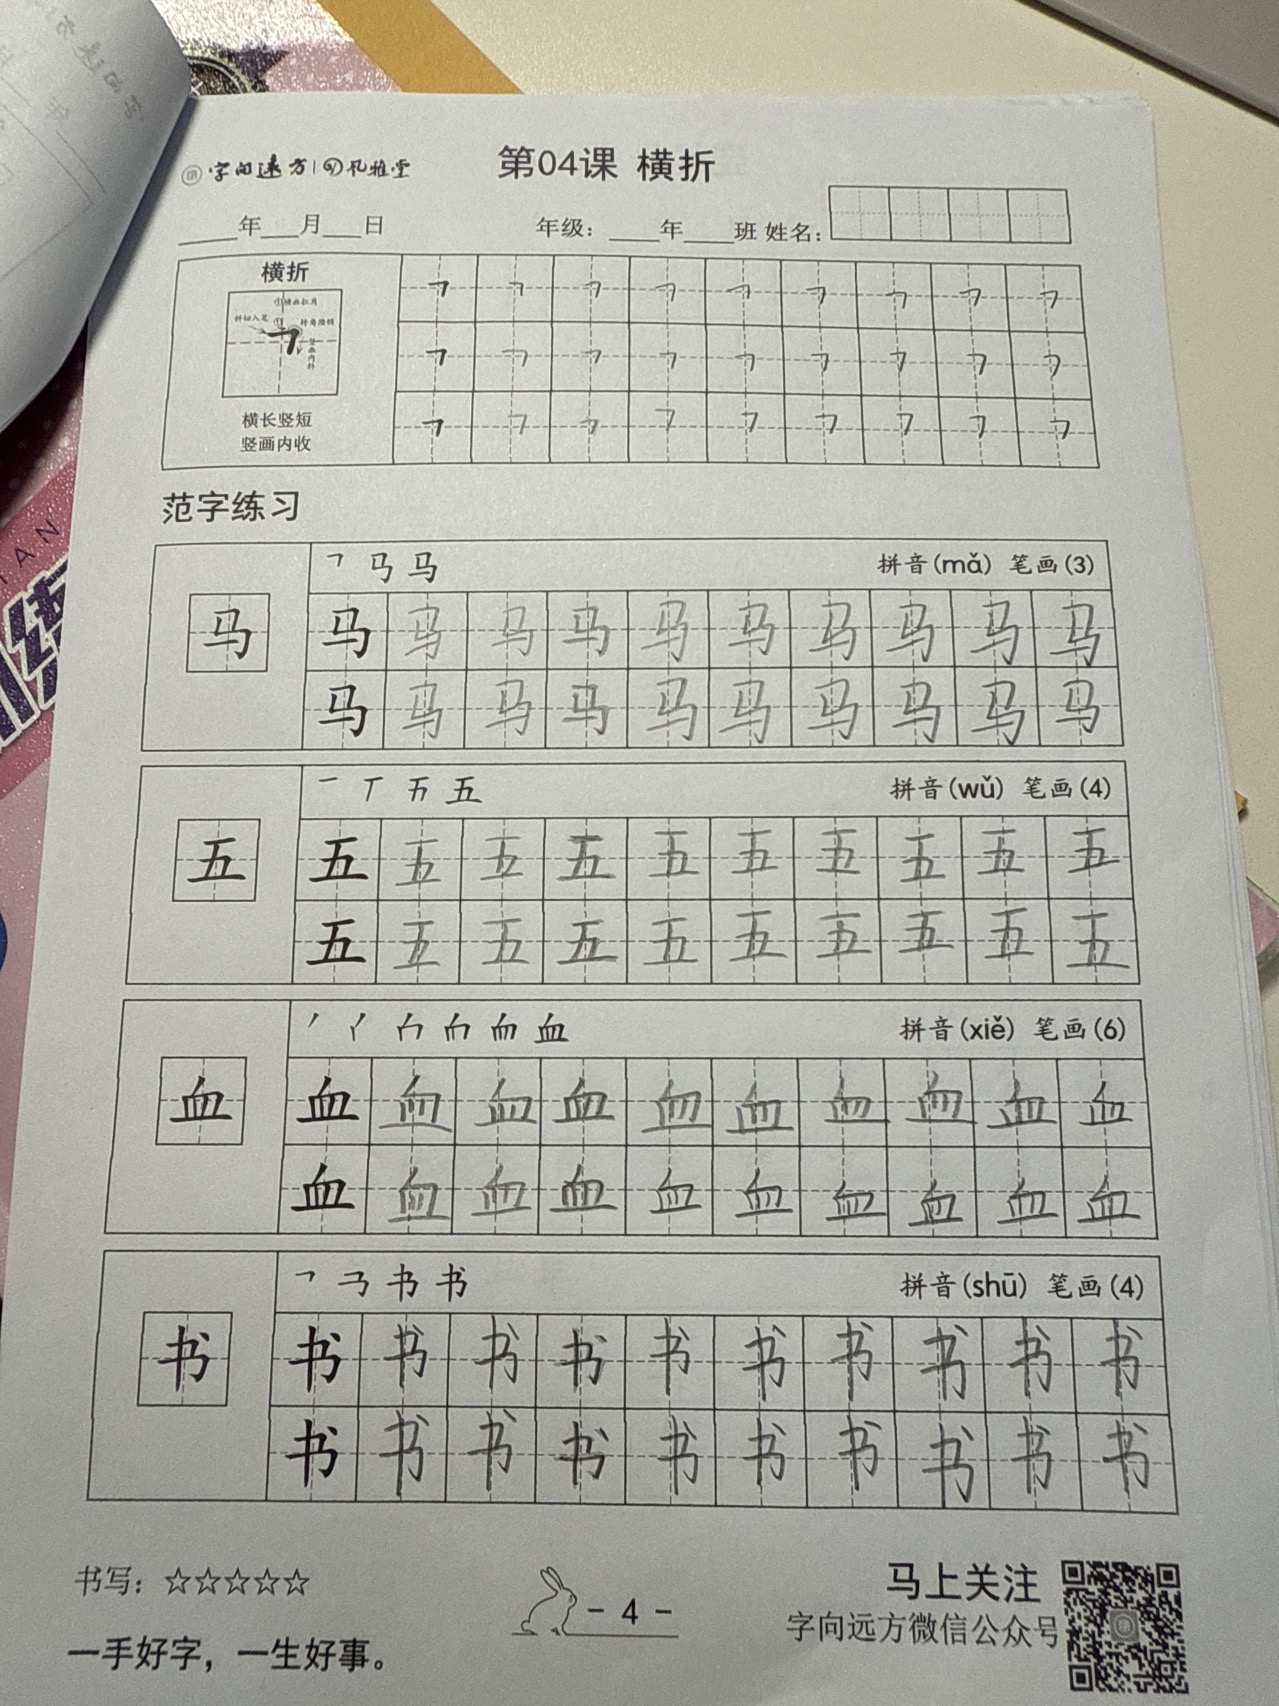 字向远方 | 孔雅堂
第04课 横折
____年___月___日 年级：____年____班 姓名：
横折
①横画扛角
斜切入笔 ① 转角滑稍
竖画内斜
横长竖短
竖画内收
范字练习
㇕ 马 马 拼音(mǎ) 笔画(3)
马 马 马 马 马 马 马 马 马 马 马
马 马 马 马 马 马 马 马 马 马
一 丅 五 拼音(wǔ) 笔画(4)
五 五 五 五 五 五 五 五 五 五 五
五 五 五 五 五 五 五 五 五 五
丿 血 拼音(xiě) 笔画(6)
血 血 血 血 血 血 血 血 血 血 血
血 血 血 血 血 血 血 血 血 血
㇕ 书 书 拼音(shū) 笔画(4)
书 书 书 书 书 书 书 书 书 书 书
书 书 书 书 书 书 书 书 书 书
书写：☆☆☆☆☆
一手好字，一生好事。
- 4 -
马上关注
字向远方微信公众号